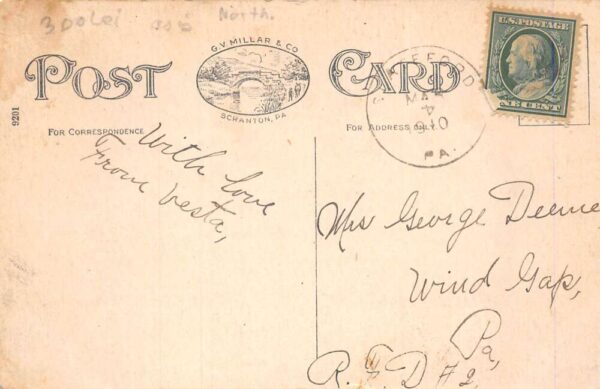 300Lei North.
U.S. POSTAGE
ONE CENT
POST CARD
G.V. MILLAR & CO
SCRANTON, PA
9201
FOR CORRESPONDENCE
FOR ADDRESS ONLY.
1910
PA.
With Love
From Vesta,
Mrs George Deeme
Wind Gap,
Pa,
R.F.D #2